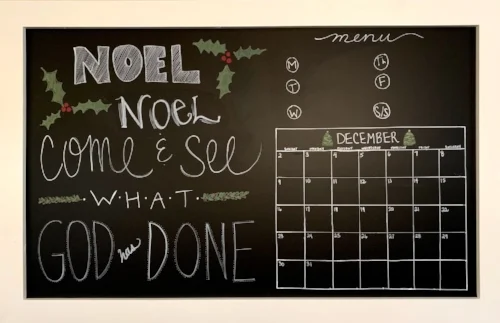 NOEL
NOEL
COME & SEE
W·H·A·T
GOD has DONE
menu
M Th
T F
W S/S
DECEMBER
2 3 4 5 6 7 8
9 10 11 12 13 14 15
16 17 18 19 20 21 22
23 24 25 26 27 28 29
30 31